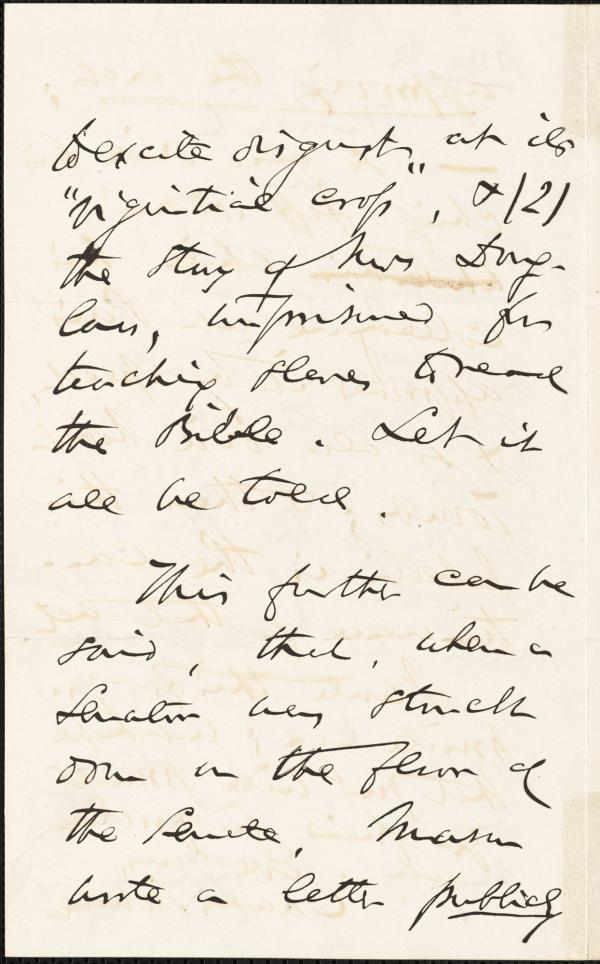 to excite disgust, at its
"vigintial crop", & (2)
the story of Mrs Doug-
lass, imprisoned for
teaching slaves to read
the Bible. Let it
all be told.
This further can be
said, that, when a
Senator was struck
down on the floor of
the Senate, Mason
wrote a letter publicly